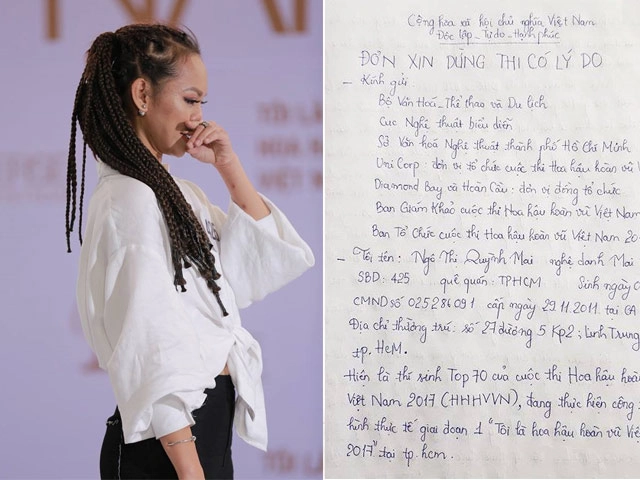 TÔI LÀ
HOA H
VIỆT N
Cộng hòa xã hội chủ nghĩa Việt Nam
Độc lập _ Tự do _ Hạnh phúc
ĐƠN XIN DỪNG THI CÓ LÝ DO
– Kính gửi
Bộ Văn Hoá _ Thể thao và Du lịch
Cục Nghệ thuật biểu diễn
Sở Văn hoá Nghệ thuật thành phố Hồ Chí Minh
Uni Corp : đơn vị tổ chức cuộc thi Hoa hậu hoàn vũ V
Diamond Bay và Hoàn Cầu : đơn vị đồng tổ chức
Ban Giám Khảo cuộc thi Hoa hậu hoàn vũ Việt Nam
Ban Tổ Chức cuộc thi Hoa hậu hoàn vũ Việt Nam 20
– Tôi tên : Ngô Thị Quỳnh Mai nghệ danh Mai
SBD : 425 quê quán : TPHCM Sinh ngày
CMND số 025286091 cấp ngày 29.11.2011 tại CA
Địa chỉ thường trú : số 27 đường 5 Kp2 ; Linh Trung
tp. HCM.
Hiện là thí sinh Top 70 của cuộc thi Hoa hậu hoàn
Việt Nam 2017 (HHHVVN), đang thực hiện công
hình thực tế giai đoạn 1 "Tôi là hoa hậu hoàn vũ Việ
2017" tại tp. hcm.